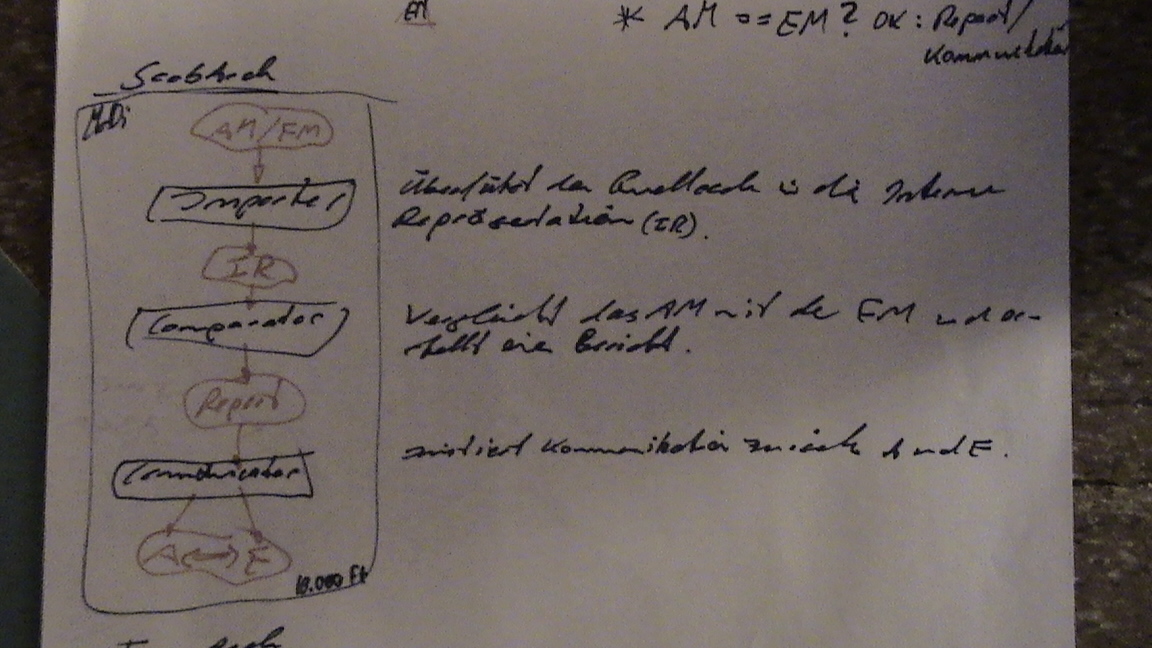 EM
* AM == EM? OK: Report/
Kommunikation
MoDi
AM/EM
Importer
Überführt den Quellcode in die Interne
Repräsentation (IR).
IR
Comparator
Vergleicht das AM mit der EM und er-
stellt ein Bericht.
Report
Communicator
initiiert Kommunikation zwischen A und E.
A ↔ E
10.000 Ft